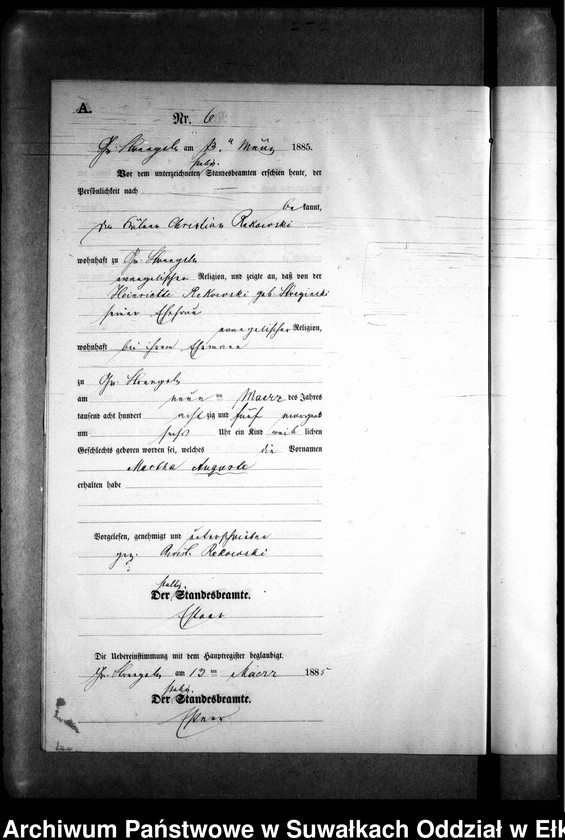 A.
Nr. 6
Gr. Strengeln am 13. März 1885.
stellv.
Vor dem unterzeichneten Standesbeamten erschien heute, der
Persönlichkeit nach
bekannt,
der Christian Rekowski
wohnhaft zu Gr. Strengeln
evangelischer Religion, und zeigte an, daß von der
Heinriette Rekowski geb.
seiner Ehefrau
evangelischer Religion,
wohnhaft bei ihrem Ehemann
zu Gr. Strengeln
am neun ten Maerz des Jahres
tausend acht hundert acht zig und fünf morgens
um sechs Uhr ein Kind weib lichen
Geschlechts geboren worden sei, welches die Vornamen
Martha Auguste
erhalten habe
Vorgelesen, genehmigt und unterschrieben
gez. Christ. Rekowski
stellv.
Der Standesbeamte.
Die Uebereinstimmung mit dem Hauptregister beglaubigt.
Gr. Strengeln am 13 ten Maerz 1885
stellv.
Der Standesbeamte.
Archiwum Państwowe w Suwałkach Oddział w Ełk